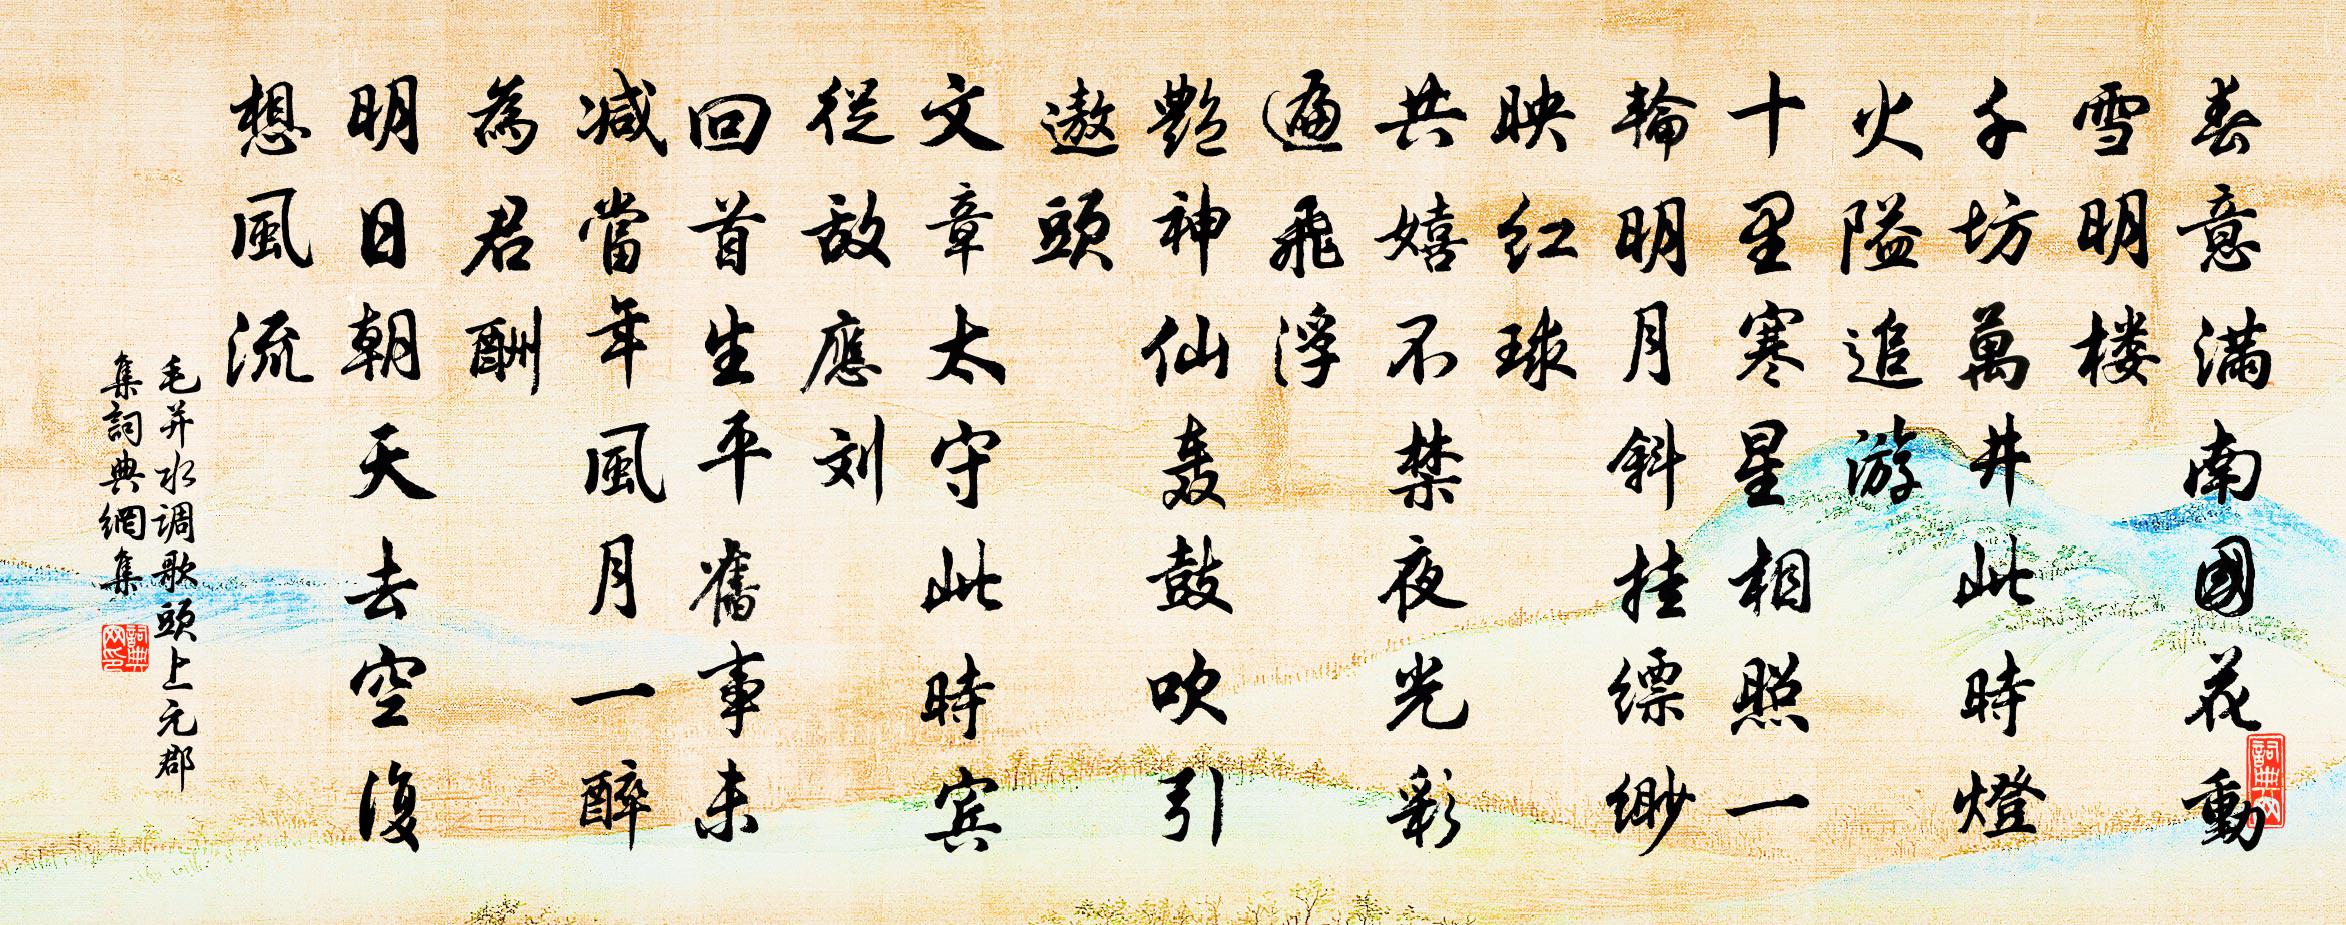 春意满南國花動
雪明楼
千坊萬井此時燈
火隘追游
十里寒星相照一
輪明月斜挂缥缈
映红球
共嬉不禁夜光彩
遍飛浮
艷神仙轰鼓吹引
遨頭
文章太守此時宾
從敌應刘
回首生平舊事未
减當年風月一醉
為君酬
明日朝天去空復
想風流
毛并水调歌頭上元郡
集詞典網集
詞典网
詞典网印